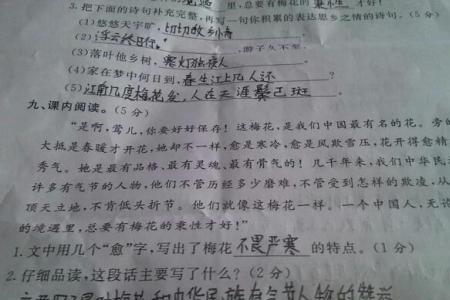 里,总要有梅花的 才好!
3.把下面的诗句补充完整,再写一句你积累的表达思乡之情的诗句。(5分)
(1)悠悠天宇旷,切切故乡情
(2)浮云终日行,游子久不至。
(3)落叶他乡树,寒灯独夜人。
(4)家在梦中何日到,春生江上几人还?
(5)江南几度梅花发,人在天涯鬓已斑。
九、课内阅读。(5分)
"是啊,莺儿,你要好好保存!这梅花,是我们中国最有名的花。旁的
大抵是春暖才开花,她却不一样,愈是寒冷,愈是风欺雪压,花开得愈精
秀气。她是最有品格、最有灵魂、最有骨气的!几千年来,我们中华民
许多有气节的人物,他们不管历经多少磨难,不管受到怎样的欺凌,从
顶天立地,不肯低头折节。他们就像这梅花一样。一个中国人,无论
的境遇里,总要有梅花的秉性才好!"
1.文中用几个"愈"字,写出了梅花不畏严寒的特点。(1分)
2.仔细品读,这段话主要写了什么?(2分)